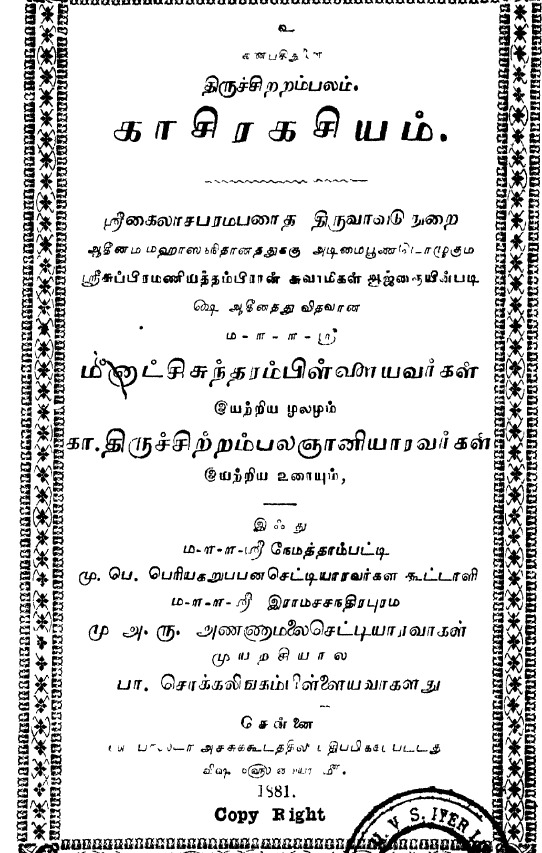 உ
திருச்சிற்றம்பலம்.
காசிரகசியம்.
ஸ்ரீகைலாசபரம்பரைத் திருவாவடுதுறை
ஆதீனம் மஹாஸந்நிதானத்துக்கு அடிமைபூண்டொழுகும்
ஸ்ரீசுப்பிரமணியத்தம்பிரான் சுவாமிகள் ஆஜ்ஞையின்படி
ஷெ ஆதீனத்து வித்வான்
ம-ள-ள-ஸ்ரீ
மீனாட்சிசுந்தரம்பிள்ளையவர்கள்
இயற்றிய மூலமும்
கா.திருச்சிற்றம்பலஞானியாரவர்கள்
இயற்றிய உரையும்,
இஃது
ம-ள-ள-ஸ்ரீ நேமத்தாம்பட்டி
மு. பெ. பெரியகறுப்பனசெட்டியாரவர்கள் கூட்டாளி
ம-ள-ள-ஸ்ரீ இராமசசந்திரபுரம்
மு அ. ரு. அண்ணாமலைசெட்டியாரவர்கள்
முயற்சியால்
பா. சொக்கலிங்கம்பிள்ளையவர்களது
சென்னை
அச்சுக்கூடத்தில் பதிப்பிக்கப்பட்டது
விஷு
1881.
Copy Right
V. S. IYER